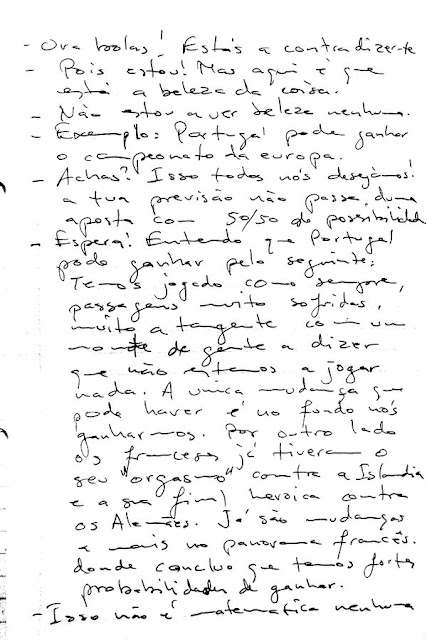 - Ora bolas! Estás a contradizer-te
- Pois estou! Mas aqui é que
está a beleza da coisa.
- Não estou a ver beleza nenhuma.
- Exemplo: Portugal pode ganhar
o campeonato da europa.
- Achas? Isso todos nós desejamos!
a tua previsão não passa duma
aposta com 50/50 de possibilidade
- Espera! Entendo que Portugal
pode ganhar pelo seguinte:
Temos jogado como sempre,
passagens muito sofridas,
muito à tangente com um
monte de gente a dizer
que não estamos a jogar
nada. A única mudança que
pode haver é no fundo nós
ganharmos. Por outro lado
os franceses já tiveram o
seu "orgasmo" contra a Islândia
e a sua final heroica contra
os Alemães. Já são mudanças
a mais no panorama francês.
donde concluo que temos fortes
probabilidades de ganhar.
- Isso não é matemática nenhuma